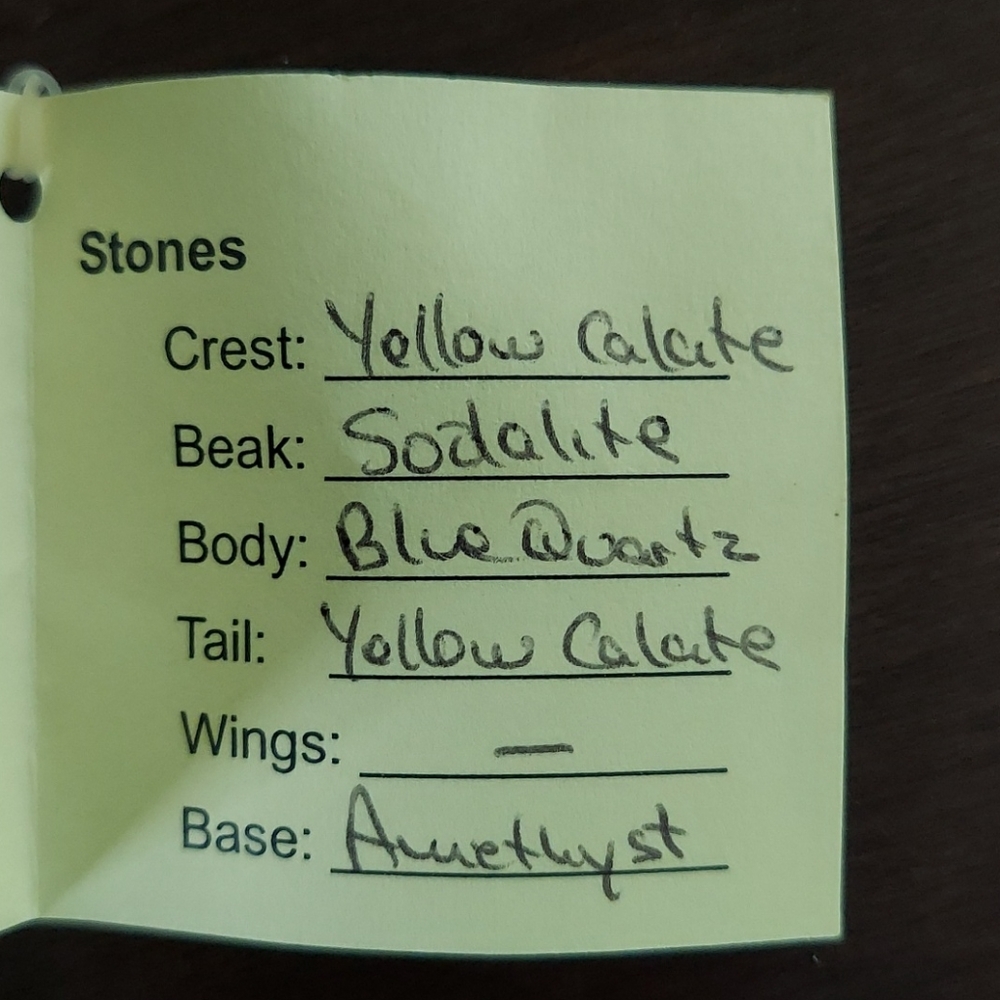 Stones
Crest: Yellow Calcite
Beak: Sodalite
Body: Blue Quartz
Tail: Yellow Calcite
Wings: —
Base: Amethyst